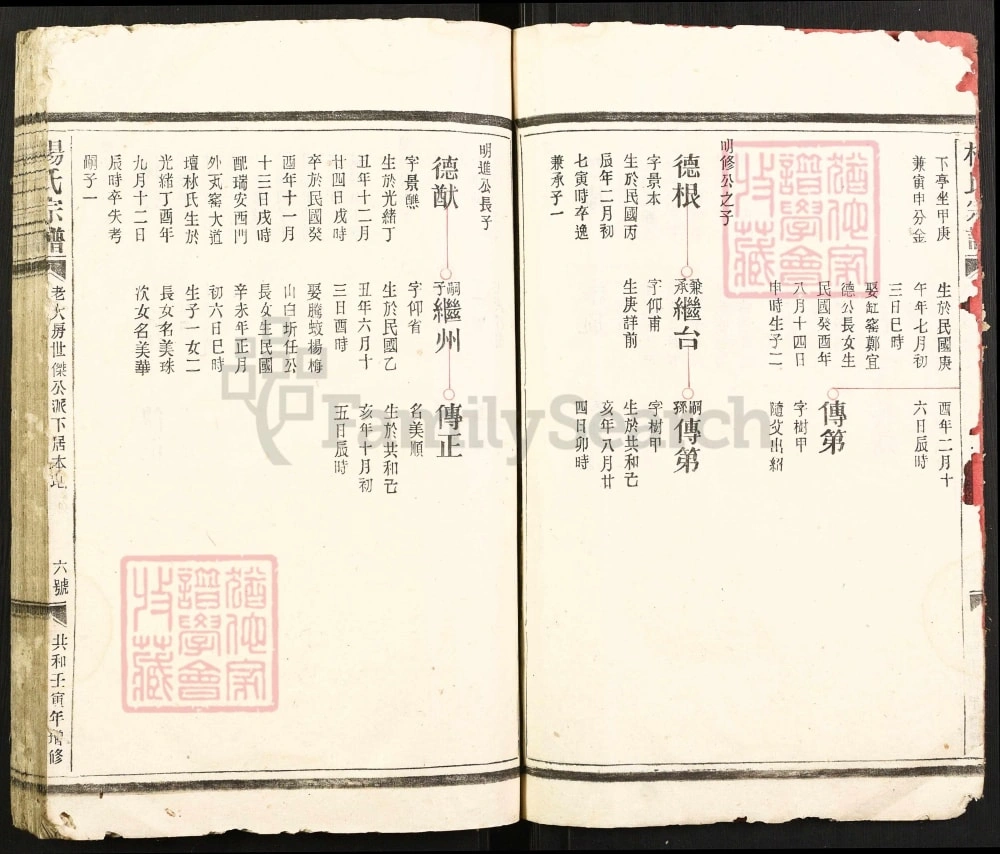 下亭坐甲庚
兼寅申分金
生於民國庚
午年七月初
三日巳時
娶缸窰鄭宜
德公長女生
民國癸酉年
八月十四日
申時生子二
酉年二月十
六日辰時
傳第
字樹甲
隨父出紹
明修公之子
德根
字景本
生於民國丙
辰年二月初
七寅時卒逸
兼承子一
兼承
繼台
字仰甫
生庚詳前
嗣孫
傳第
字樹甲
生於共和己
亥年八月廿
四日卯時
明進公長子
德猷
字景態
生於光緒丁
丑年十二月
廿四日戌時
卒於民國癸
酉年十一月
十三日戌時
配瑞安西門
外瓦窰大道
壇林氏生於
光緒丁酉年
九月十二日
辰時卒失考
嗣子一
嗣子
繼州
字仰省
生於民國乙
丑年六月十
三日酉時
娶騰蛟楊梅
山白圻任公
長女生民國
辛未年正月
初六日巳時
生子一女二
長女名美珠
次女名美華
傳正
名美順
生於共和己
亥年十月初
五日辰時
楊氏宗譜
老大房世傑公派下居本地
六號
共和壬寅年增修
FamilySearch